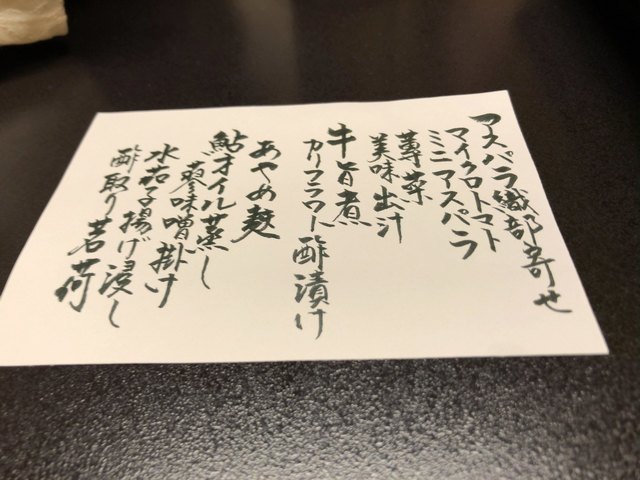 アスパラ織部寄せ
マイクロトマト
ミニアスパラ
蓴菜
美味出汁
牛旨煮
カリフラワー酢漬け
あやめ麩
鮎オイル蒸し
蓼味噌掛け
水茄子揚げ浸し
酢取り茗荷